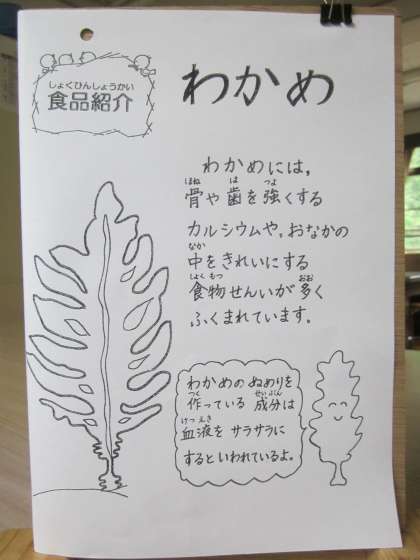 しょくひんしょうかい
食品紹介
わかめ
わかめには,
骨や歯を強くする
カルシウムや,おなかの
中をきれいにする
食物せんいが多く
ふくまれています。
わかめのぬめりを
作っている成分は
血液をサラサラに
するといわれているよ。